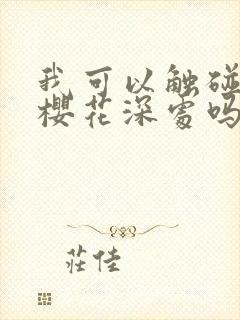 我可以触碰
樱花深处吗
莊佳